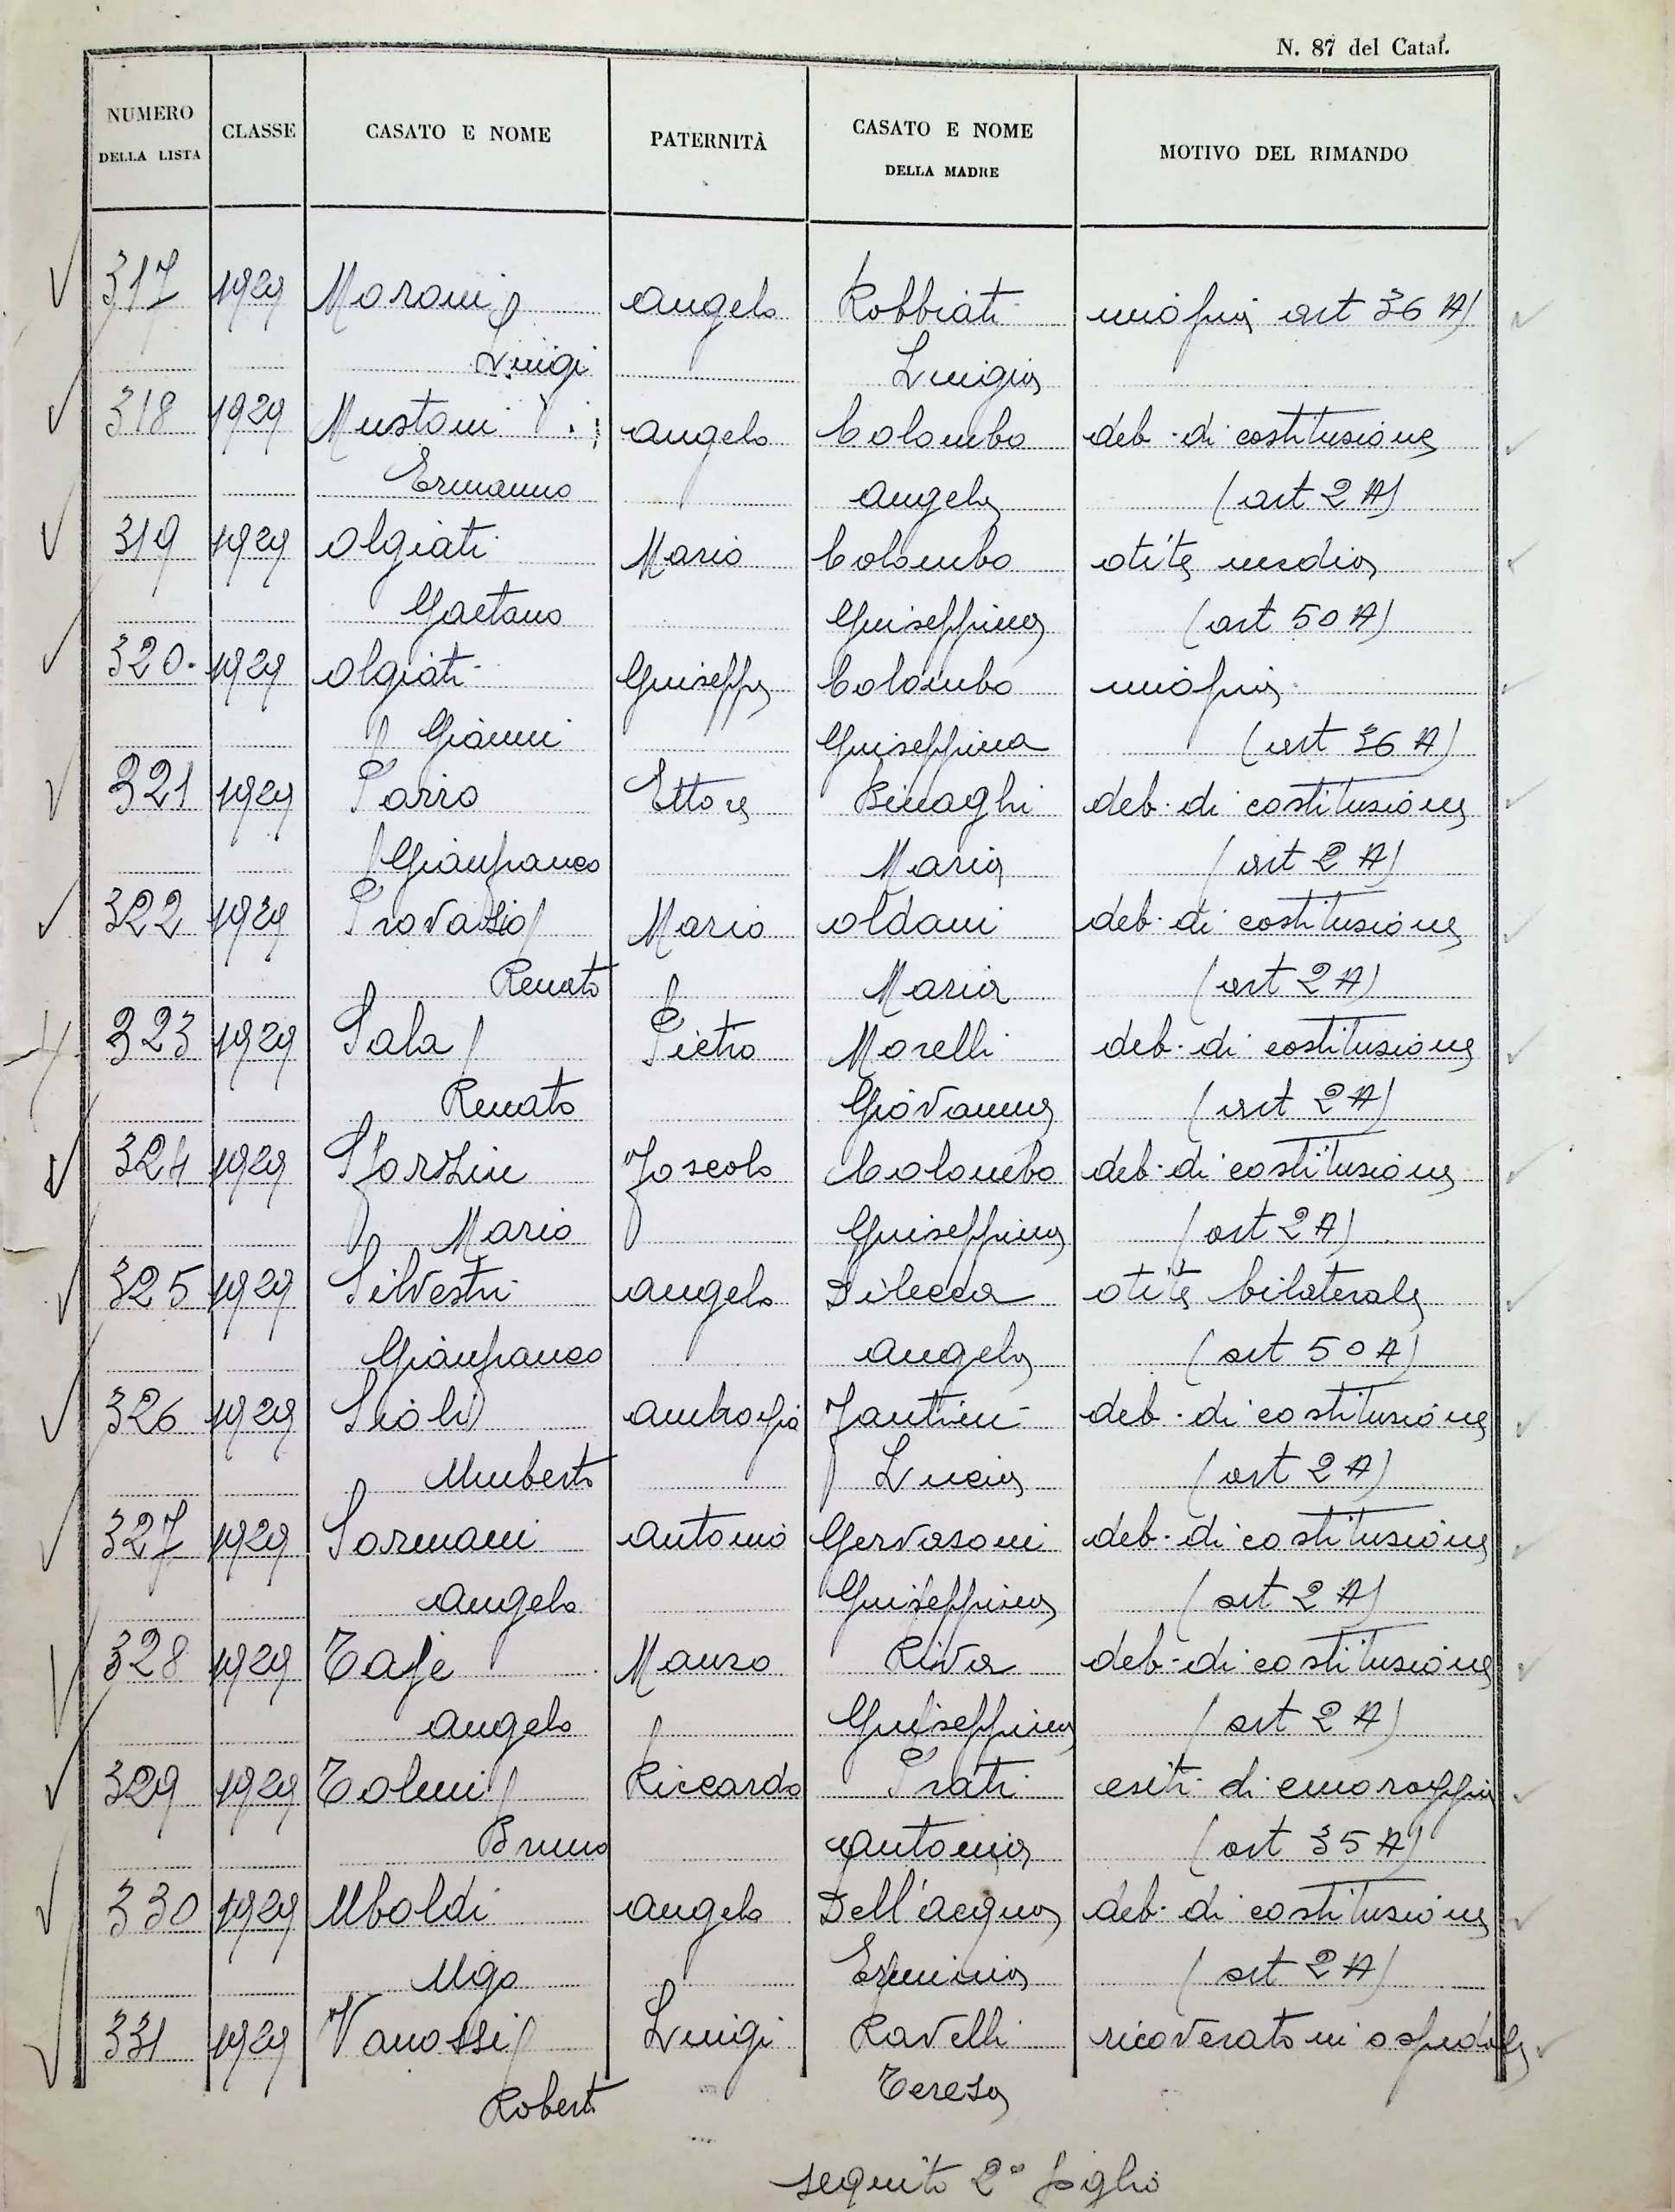 N. 87 del Catal.
NUMERO DELLA LISTA CLASSE CASATO E NOME PATERNITÀ CASATO E NOME DELLA MADRE MOTIVO DEL RIMANDO
317 1929 Moroni Angelo Robbiati miopia art 36 A)
Luigi Luigia
318 1929 Mustoni Angelo Colombo deb. di costituzione
Ermanno Angela (art 2 A)
319 1929 Olgiati Mario Colombo otite media
Gaetano Giuseppina (art 50 A)
320. 1929 Olgiati Giuseppe Colombo miopia
Gianni Giuseppina (art 36 A)
321 1929 Parro Ettore Binaghi deb. di costituzione
Gianfranco Maria (art 2 A)
322 1929 Provasio Mario Oldani deb. di costituzione
Renato Maria (art 2 A)
323 1929 Sala Pietro Morelli deb. di costituzione
Renato Giovanna (art 2 A)
324 1929 Sforzin Foscolo Colombo deb. di costituzione
Mario Giuseppina (art 2 A)
325 1929 Silvestri Angelo Dilecca otite bilaterale
Gianfranco Angela (art 50 A)
326 1929 Sioli Ambrogio Fantini deb. di costituzione
Umberto Lucia (art 2 A)
327 1929 Sormani Antonio Gervasoni deb. di costituzione
Angelo Giuseppina (art 2 A)
328 1929 Taje Mauro Riva deb. di costituzione
Angelo Giuseppina (art 2 A)
329 1929 Tolmi Riccardo Prati esiti di emoraggia
Bruno Antonia (art 35 A)
330 1929 Uboldi Angelo Dell'acqua deb. di costituzione
Ugo Erminia (art 2 A)
331 1929 Vanossi Luigi Ravelli ricoverato in ospedale
Roberto Teresa
seguito 2° foglio